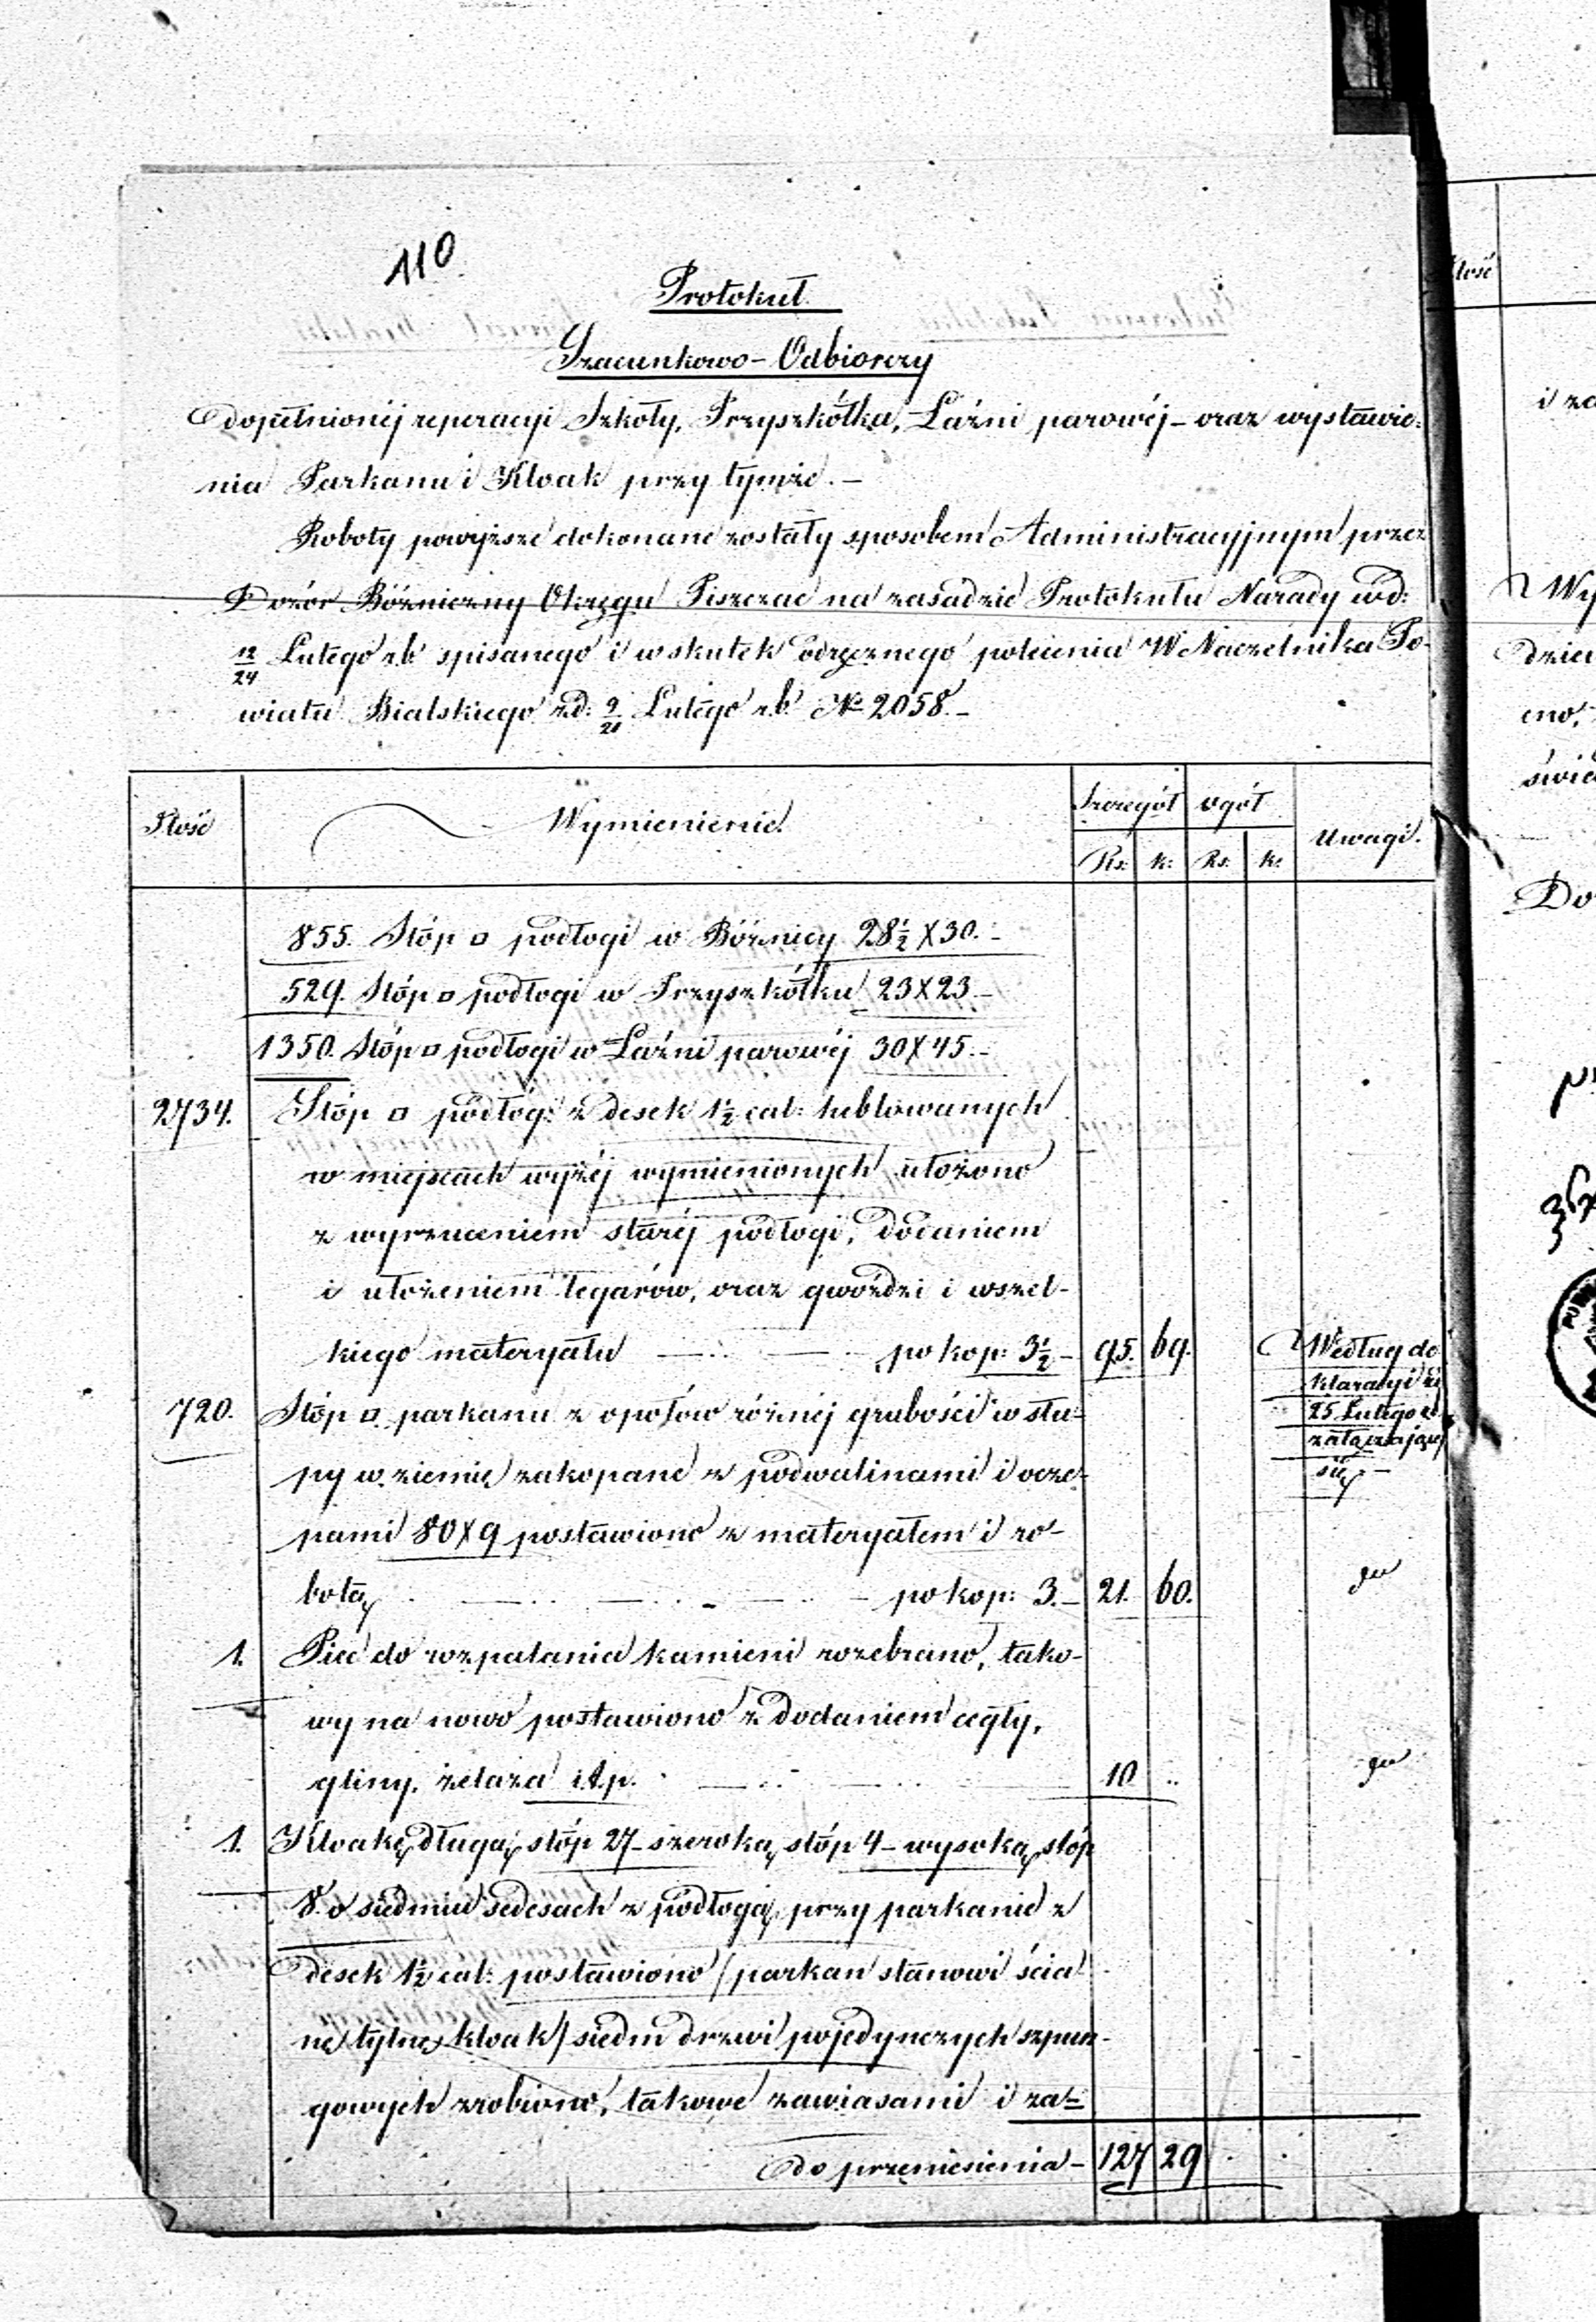 110
Protokuł
Szacunkowo-Odbiorczy
dopełnionéj reperacyi Szkoły, Przyszkółka, Łaźni parowéj – oraz wystawie=
nia Parkanu i Kloak przy tymże. –
Roboty powyższe dokonane zostały sposobem Administracyjnym przez
Dozór Bóżniczny Okręgu Piszczac na zasadzie Protokułu Narady w d:
12/24 Lutego r.b. spisanego i w skutek odręcznego polecenia W Naczelnika Po-
wiatu Bialskiego z d: 9/21 Lutego r.b. № 2058. –
Ilość
Wymienienie.
Szczegół ogół
Uwagi.
Rs: k: Rs: k:
855. Stóp □ podłogi w Bóżnicy 28½ X 30. –
529. Stóp □ podłogi w Przyszkółku 23 X 23 –
1350. Stóp □ podłogi w Łaźni parowéj 30 X 45. –
2734. Stóp □ podłóg: z desek 1½ cal: heblowanych
w miejscach wyżéj wymienionych ułożono
z wyrzuceniem staréj podłogi, dodaniem
i ułożeniem legarów, oraz gwoździ i wszel-
kiego materyału po kop: 3½ – 95. 69.
Według de
klaracyi z
25 Lutego
załączającej
się –
720. Stóp □ parkanu z opołów różnéj grubości w słu=
py w ziemię zakopane z podwalinami i ocze-
pami 80 X 9 postawiono z materyałem i ro-
botą po kop: 3. – 21. 60.
1. Piec do rozpalania kamieni rozebrano, tako-
wy na nowo postawiono z dodaniem cegły,
gliny, żelaza i t.p. 10 ..
1. Kloakę długą stóp 27 – szeroką stóp 4 – wysoką stóp
8. o siedmiu sedesach z podłogą, przy parkanie z
desek 1½ cal: postawiono / parkan stanowi ścia
nę tylną kloak / siedm drzwi pojedynczych szpun-
gowych zrobiono, takowe zawiasami i za=
do przeniesienia – 127 29